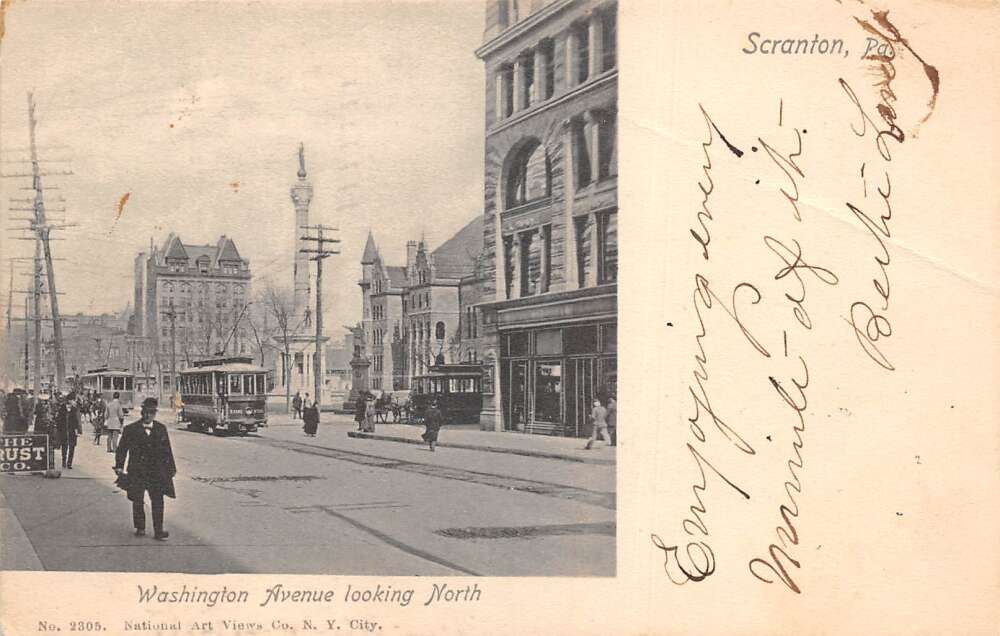 Scranton, Pa.
HE
RUST
CO.
Enjoying every
minute of it.
Bertie
Washington Avenue looking North
No. 2305. National Art Views Co. N. Y. City.